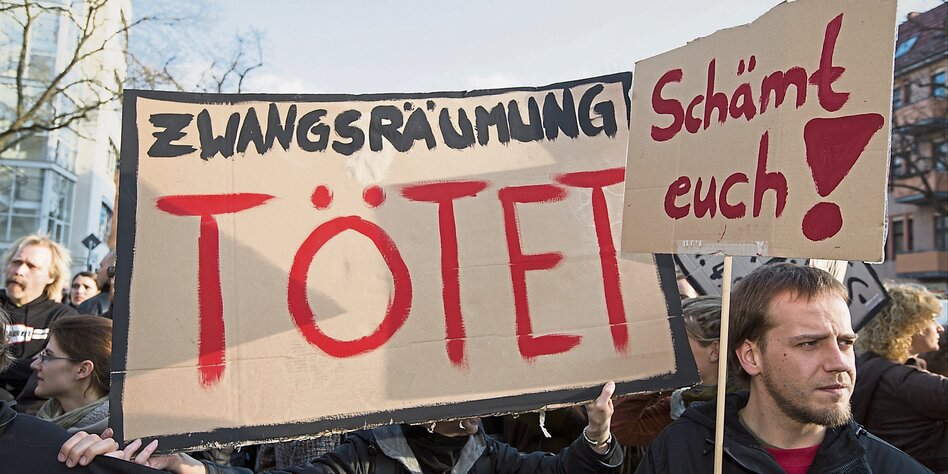 ZWANGSRÄUMUNG
TÖTET
Schämt
euch!